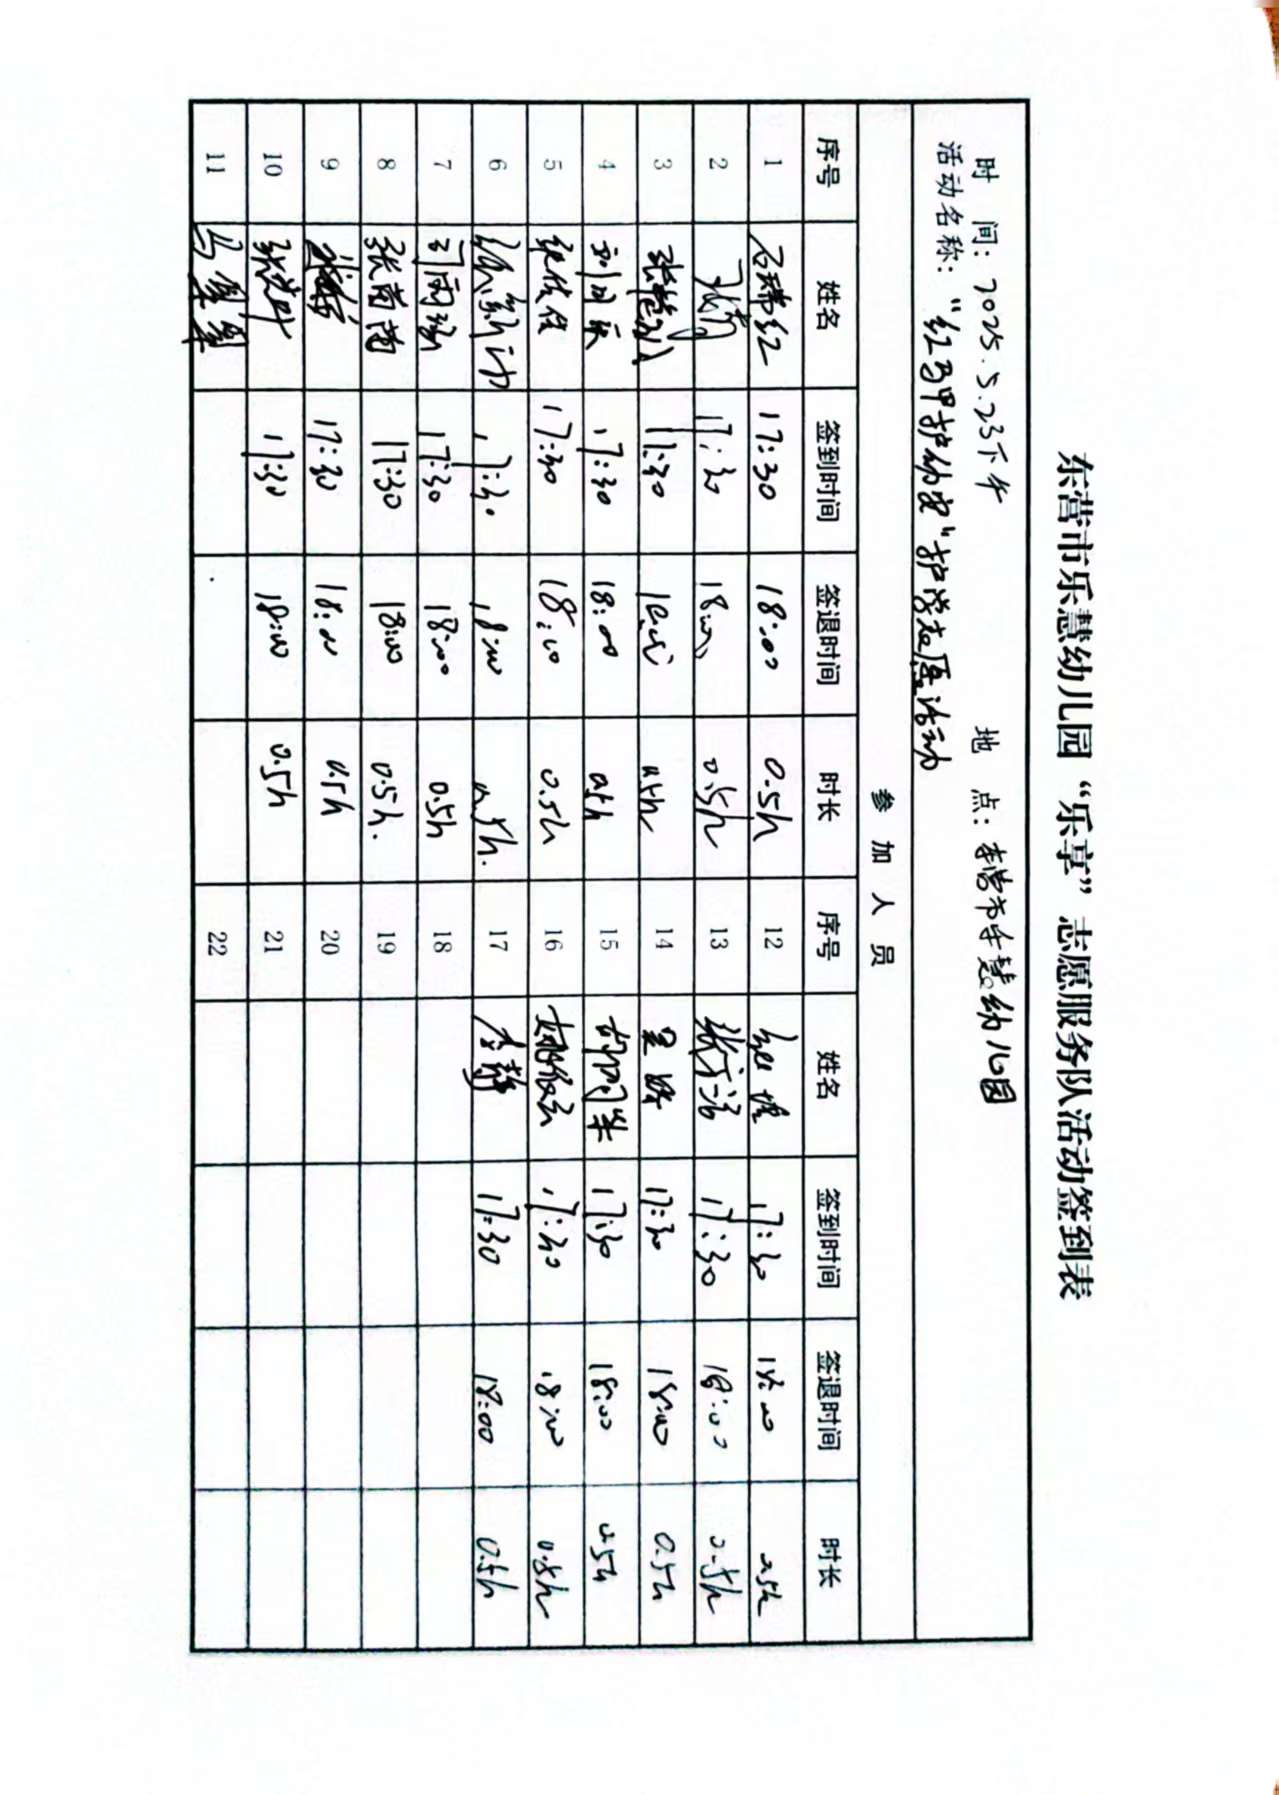 东营市乐慧幼儿园“乐享”志愿服务队活动签到表
时 间：2025.5.23下午 地 点：东营市乐慧幼儿园
活动名称：“红马甲护幼安”护学志愿活动
参 加 人 员
序号 姓名 签到时间 签退时间 时长 序号 姓名 签到时间 签退时间 时长
1 石瑞红 17:30 18:00 0.5h 12 17:30 18:00 0.5h
2 17:30 18:00 0.5h 13 17:30 18:00 0.5h
3 17:30 18:00 0.5h 14 17:30 18:00 0.5h
4 17:30 18:00 0.5h 15 17:30 18:00 0.5h
5 张倩倩 17:30 18:00 0.5h 16 17:30 18:00 0.5h
6 17:30 18:00 0.5h. 17 李静 17:30 18:00 0.5h
7 17:30 18:00 0.5h 18
8 张茜茜 17:30 18:00 0.5h. 19
9 17:30 18:00 0.5h 20
10 17:30 18:00 0.5h 21
11 22